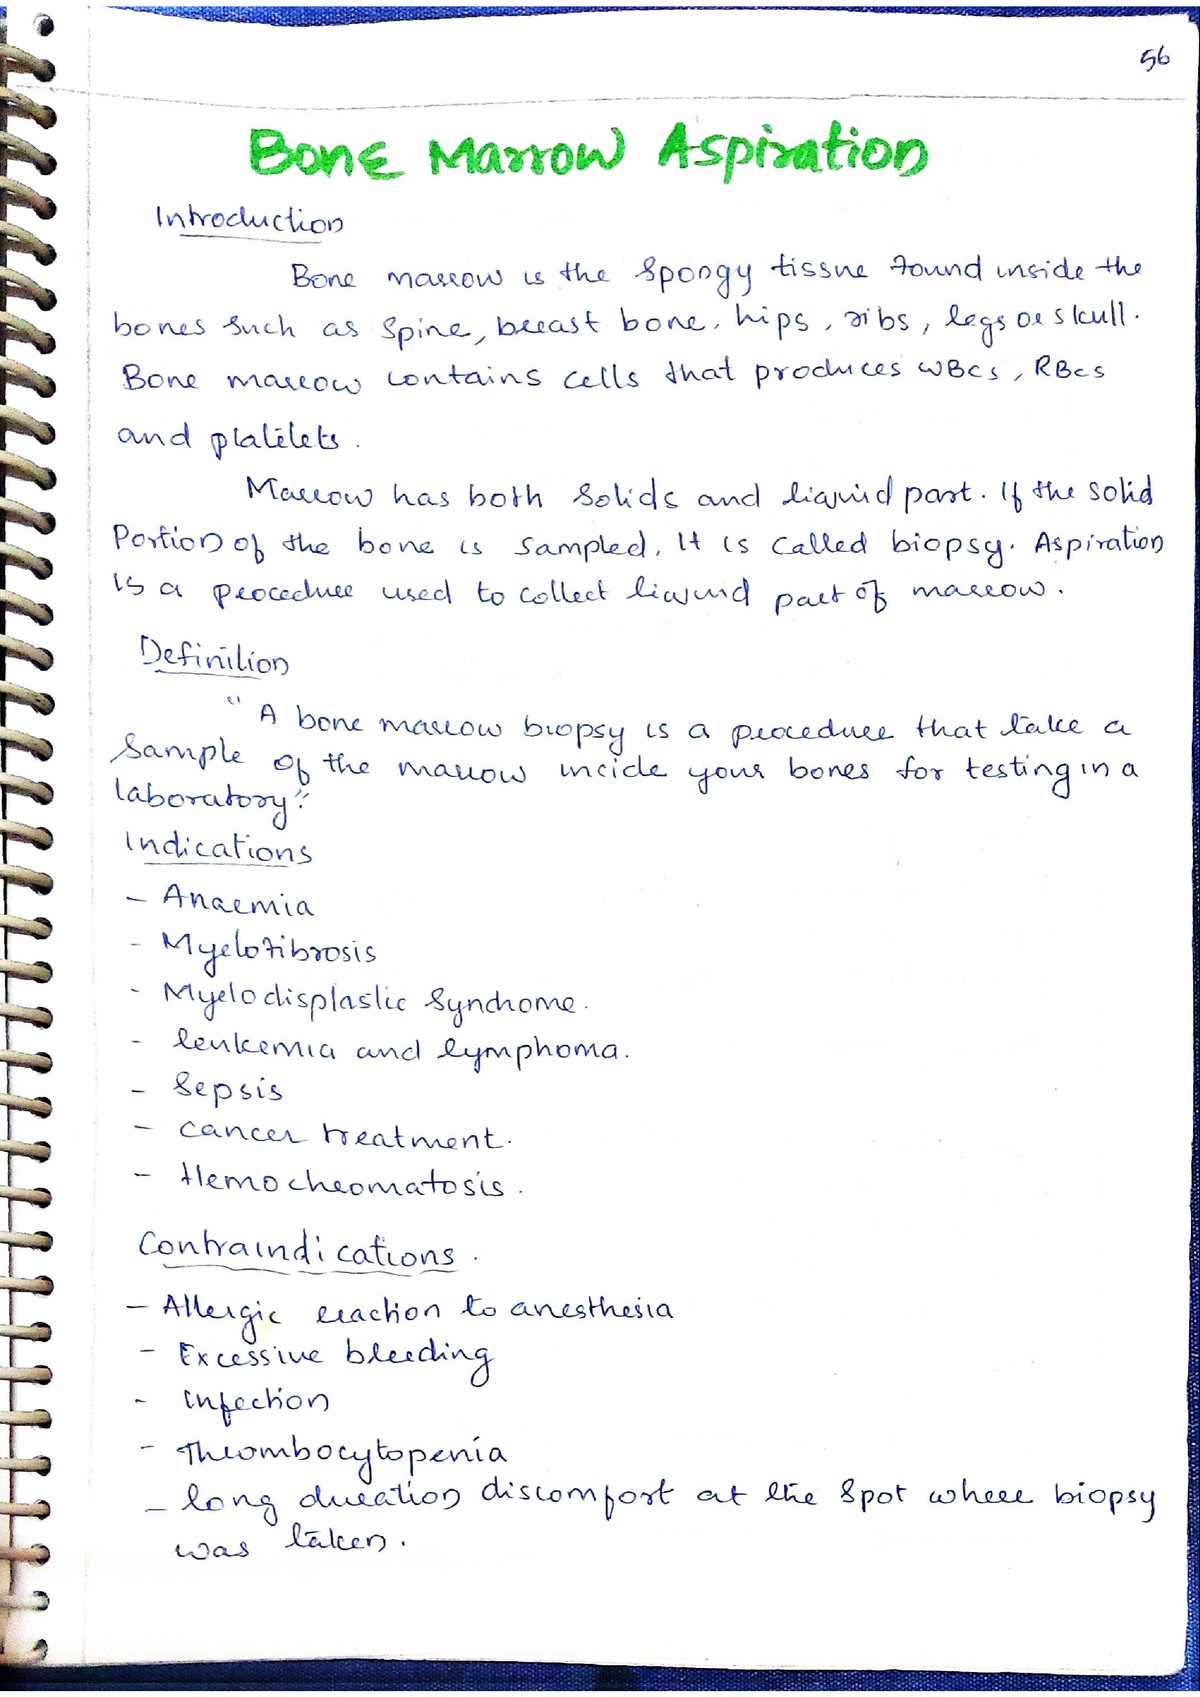 56
Bone Marrow Aspiration
Introduction
Bone marrow is the spongy tissue found inside the
bones such as spine, breast bone, hips, ribs, legs or skull.
Bone marrow contains cells that produces WBCs, RBCs
and platelets.
Marrow has both solids and liquid part. If the solid
Portion of the bone is sampled, It is called biopsy. Aspiration
is a procedure used to collect liquid part of marrow.
Definition
" A bone marrow biopsy is a procedure that take a
sample of the marrow incide your bones for testing in a
laboratory".
Indications
- Anaemia
- Myelofibrosis
- Myelodisplastic Syndrome.
- leukemia and lymphoma.
- Sepsis
- cancer treatment.
- Hemochromatosis.
Contraindications.
- Allergic reaction to anesthesia
- Excessive bleeding
- Infection
- Thrombocytopenia
- long duration discomfort at the spot where biopsy
was taken.